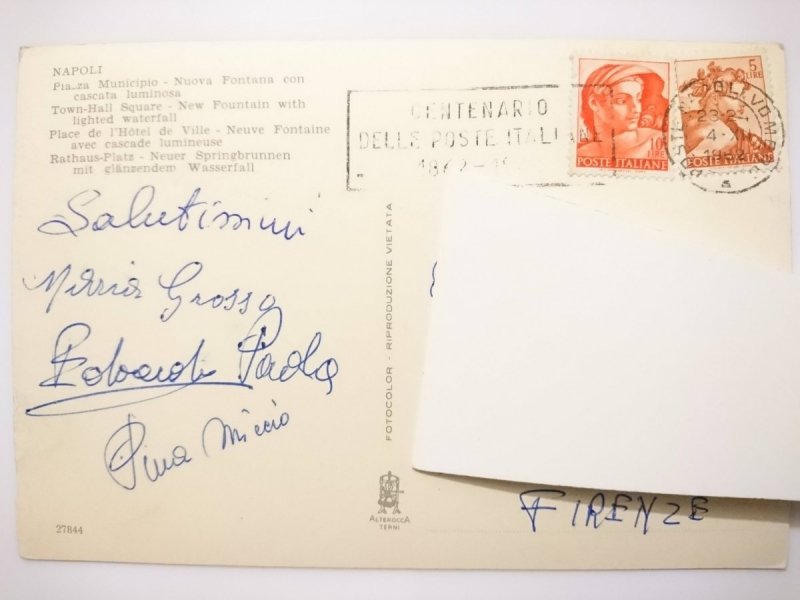 NAPOLI
Piazza Municipio - Nuova Fontana con
cascata luminosa
Town-Hall Square - New Fountain with
lighted waterfall
Place de l'Hôtel de Ville - Neuve Fontaine
avec cascade lumineuse
Rathaus-Platz - Neuer Springbrunnen
mit glänzendem Wasserfall
CENTENARIO
DELLE POSTE ITALIANE
1862-19
10 LIRE
POSTE ITALIANE
5 LIRE
POSTE ITALIANE
23-2-
4-
1962
Salutissimi
Maria Grosso
Edoardo Paola
Pina Miccio
FOTOCOLOR - RIPRODUZIONE VIETATA
ALTEROCCA
TERNI
27844
FIRENZE